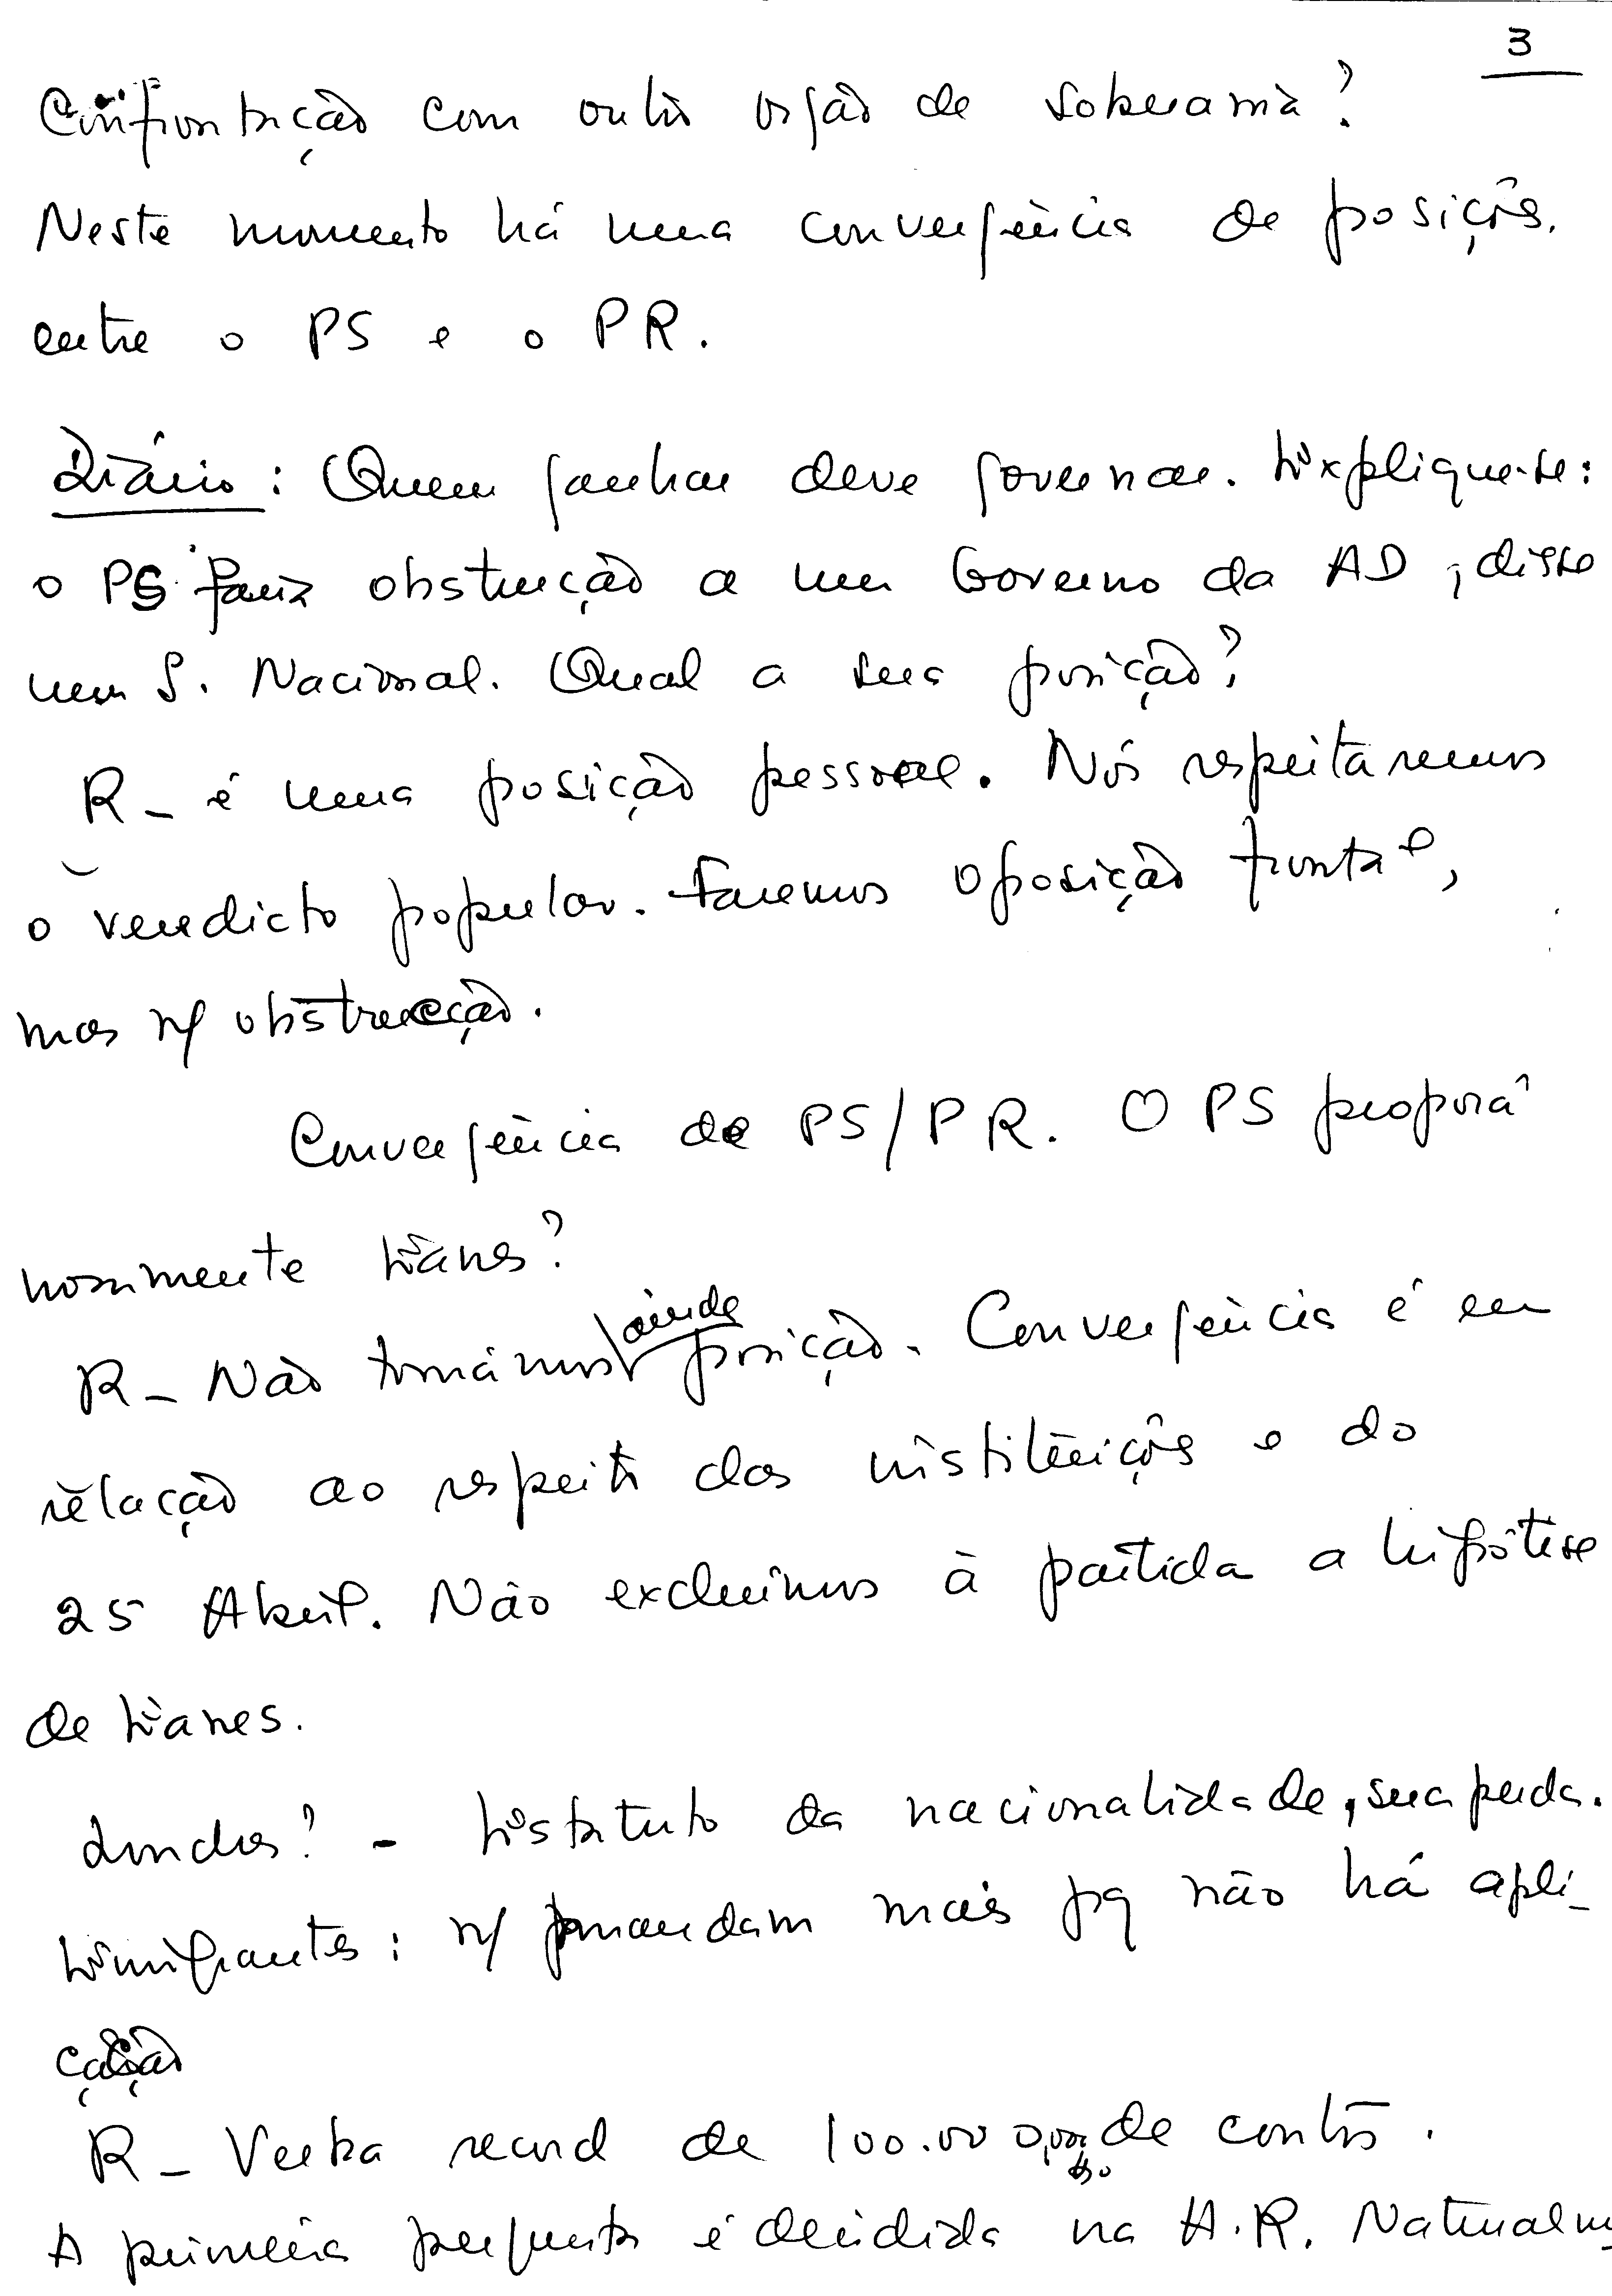 3
Confrontação com outro orgão de soberania?
Neste momento há uma convergência de posições.
entre o PS e o PR.
Diário: Quem ganhar deve governar. Explique-se:
o PS faria obstrução a um Governo da AD, disse
um S. Nacional. Qual a sua posição?
R - é uma posição pessoal. Nós respeitaremos
o veredicto popular. Faremos oposição frontal,
mas ñ/ obstrucção.
Convergência de PS/PR. O PS proporá
novamente Eanes?
R - Não tomámos ainda posição. Convergência é em
relação ao respeito das instituições e do
25 Abril. Não excluimos à partida a hipótese
de Eanes.
Londres? - Estatuto da nacionalidade, sua perda.
Emigrantes: ñ/ mandam mais pq não há apli-
cação
R - Verba record de 100.000, de contos.
A primeira pergunta é decidida na A.R. Naturalm